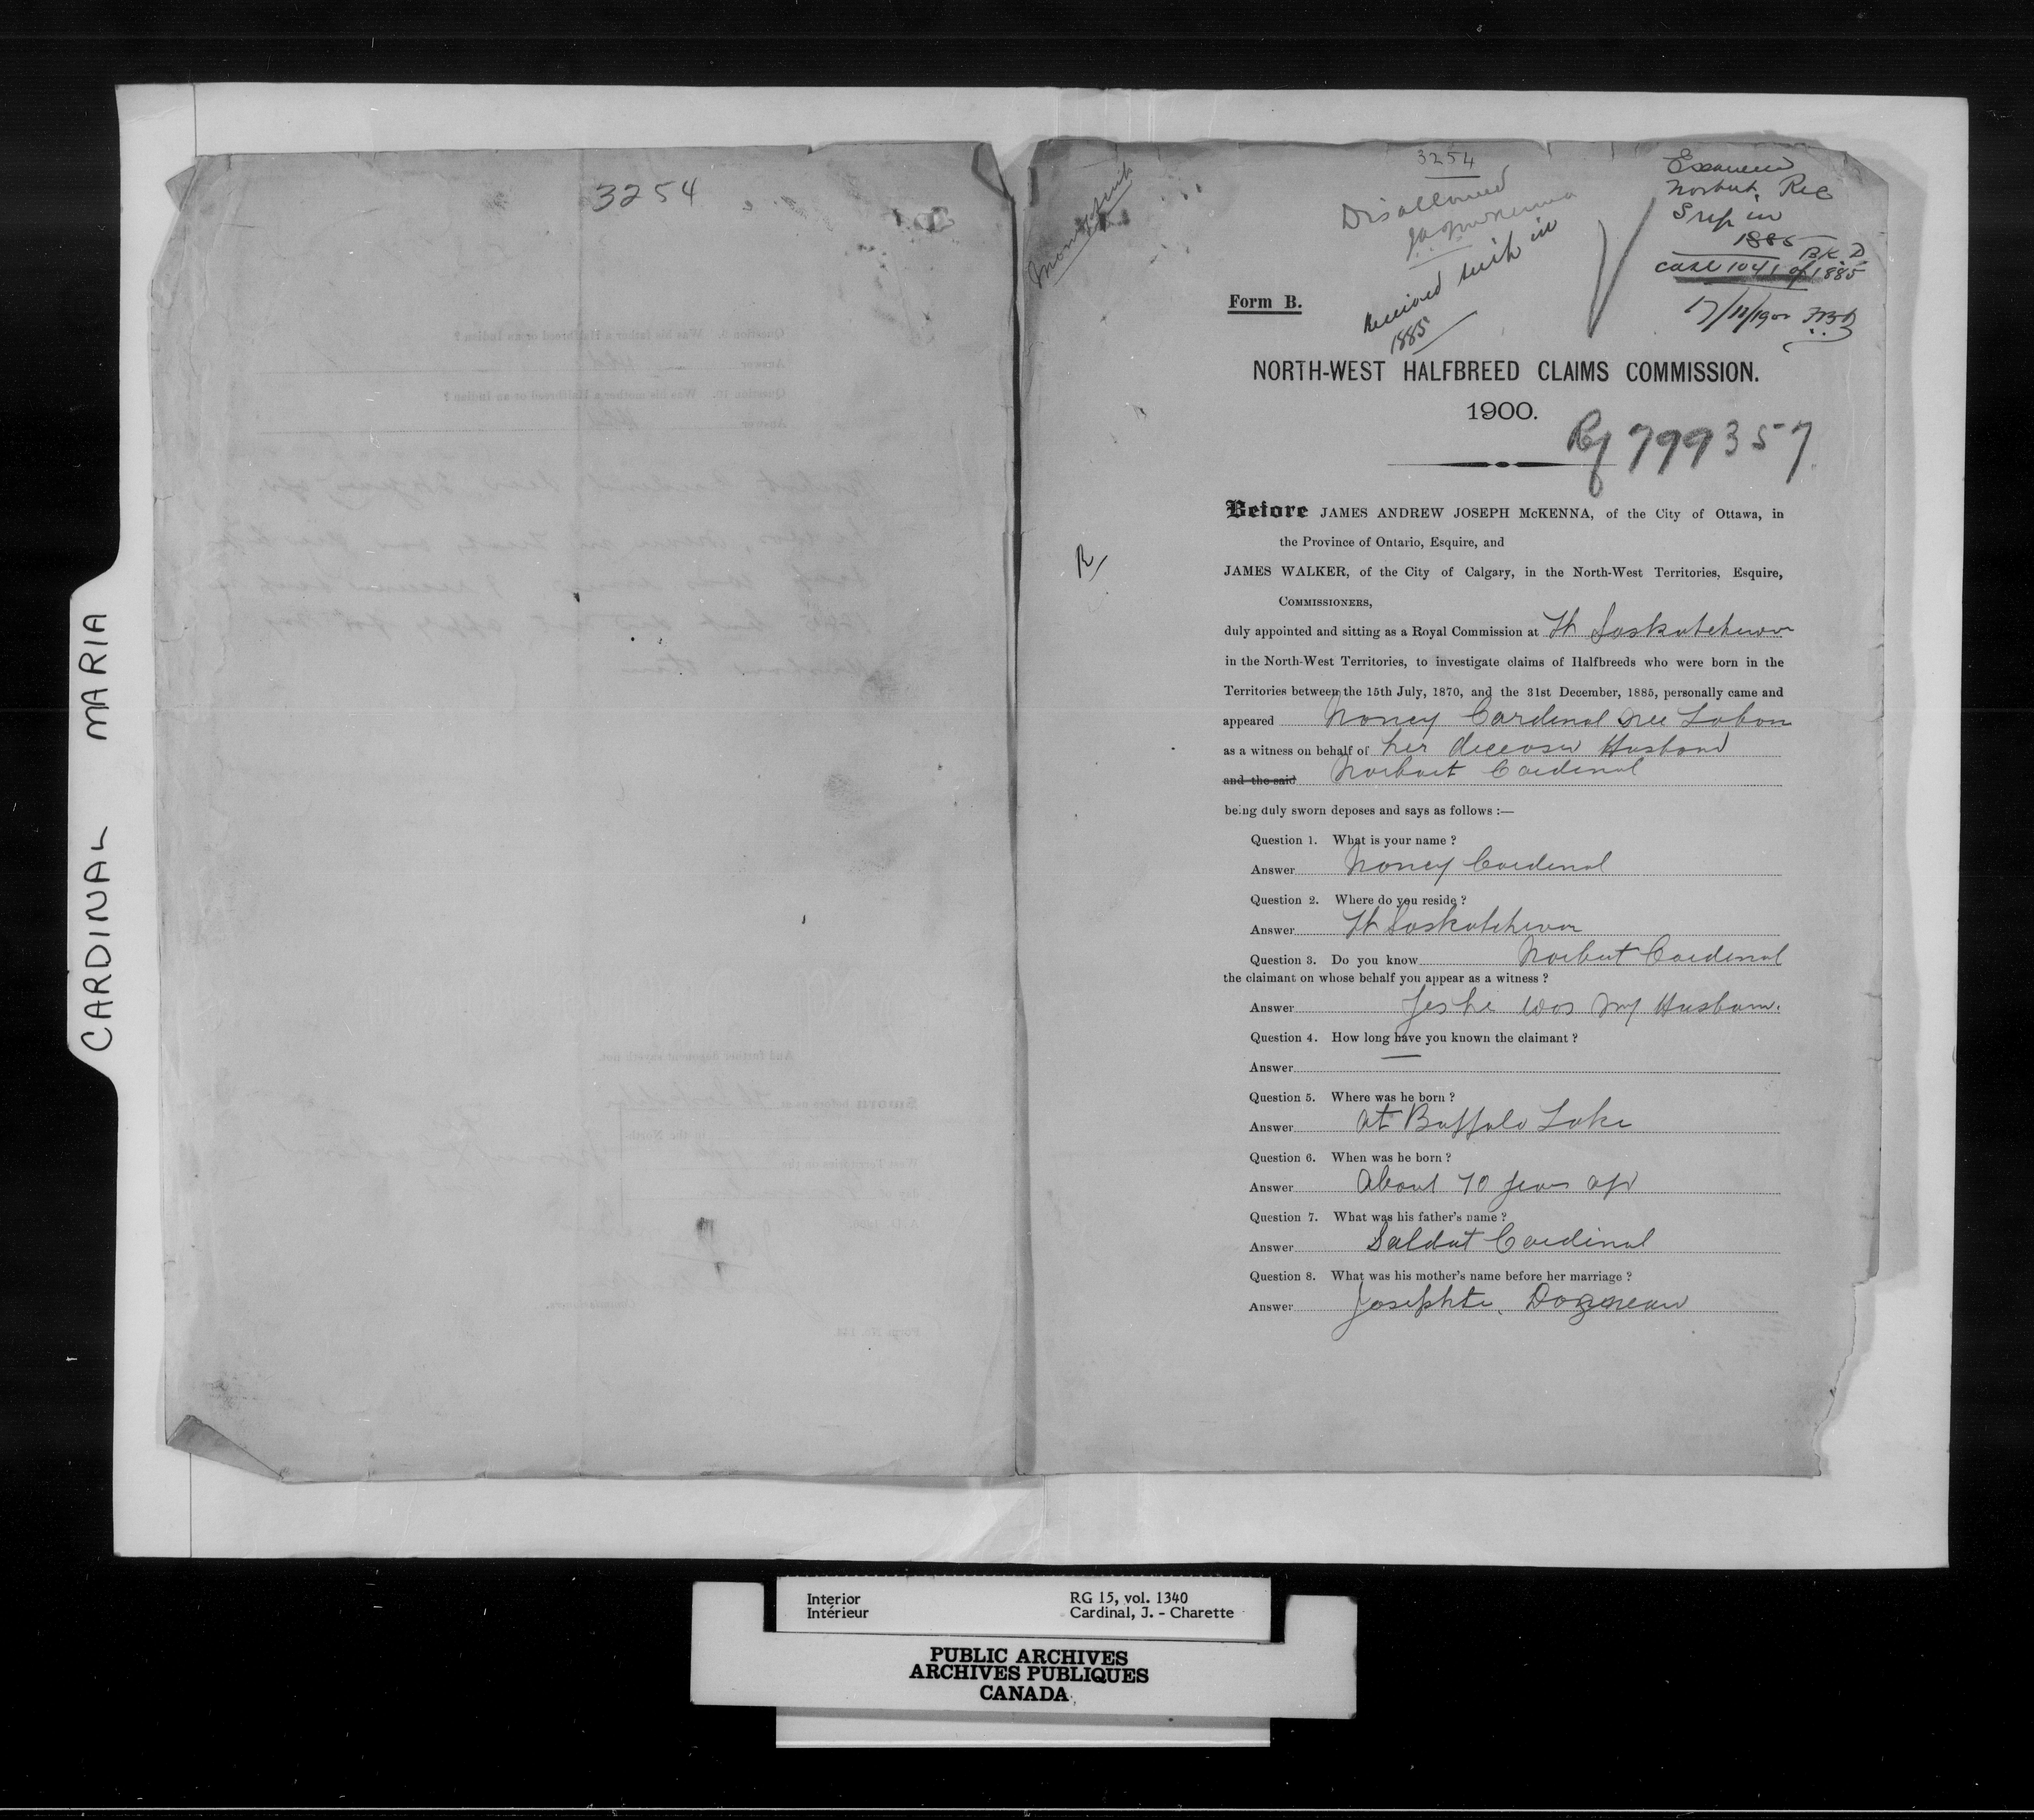 CARDINAL MARIA
3254
3254
Disallowed
JAJ McKenna
received scrip in
1885
Examined
Norbut Rec
Srip in
1885
BK. D
case 1041 of 1885
17/12/1900
Form B.
NORTH-WEST HALFBREED CLAIMS COMMISSION.
1900.
Rf 799357
R
Before JAMES ANDREW JOSEPH McKENNA, of the City of Ottawa, in
the Province of Ontario, Esquire, and
JAMES WALKER, of the City of Calgary, in the North-West Territories, Esquire,
COMMISSIONERS,
duly appointed and sitting as a Royal Commission at Ft Saskatchewan
in the North-West Territories, to investigate claims of Halfbreeds who were born in the
Territories between the 15th July, 1870, and the 31st December, 1885, personally came and
appeared Nancy Cardinal nee Labon
as a witness on behalf of her deceased Husband
and the said Norbut Cardinal
being duly sworn deposes and says as follows :—
Question 1. What is your name ?
Answer Nancy Cardinal
Question 2. Where do you reside ?
Answer Ft Saskatchewan
Question 3. Do you know Norbut Cardinal
the claimant on whose behalf you appear as a witness ?
Answer Yes he was my Husband.
Question 4. How long have you known the claimant ?
Answer —
Question 5. Where was he born ?
Answer at Buffalo Lake
Question 6. When was he born ?
Answer About 70 years ago
Question 7. What was his father's name ?
Answer Saldat Cardinal
Question 8. What was his mother's name before her marriage ?
Answer Josephte
Interior
Intérieur
RG 15, vol. 1340
Cardinal, J. - Charette
PUBLIC ARCHIVES
ARCHIVES PUBLIQUES
CANADA